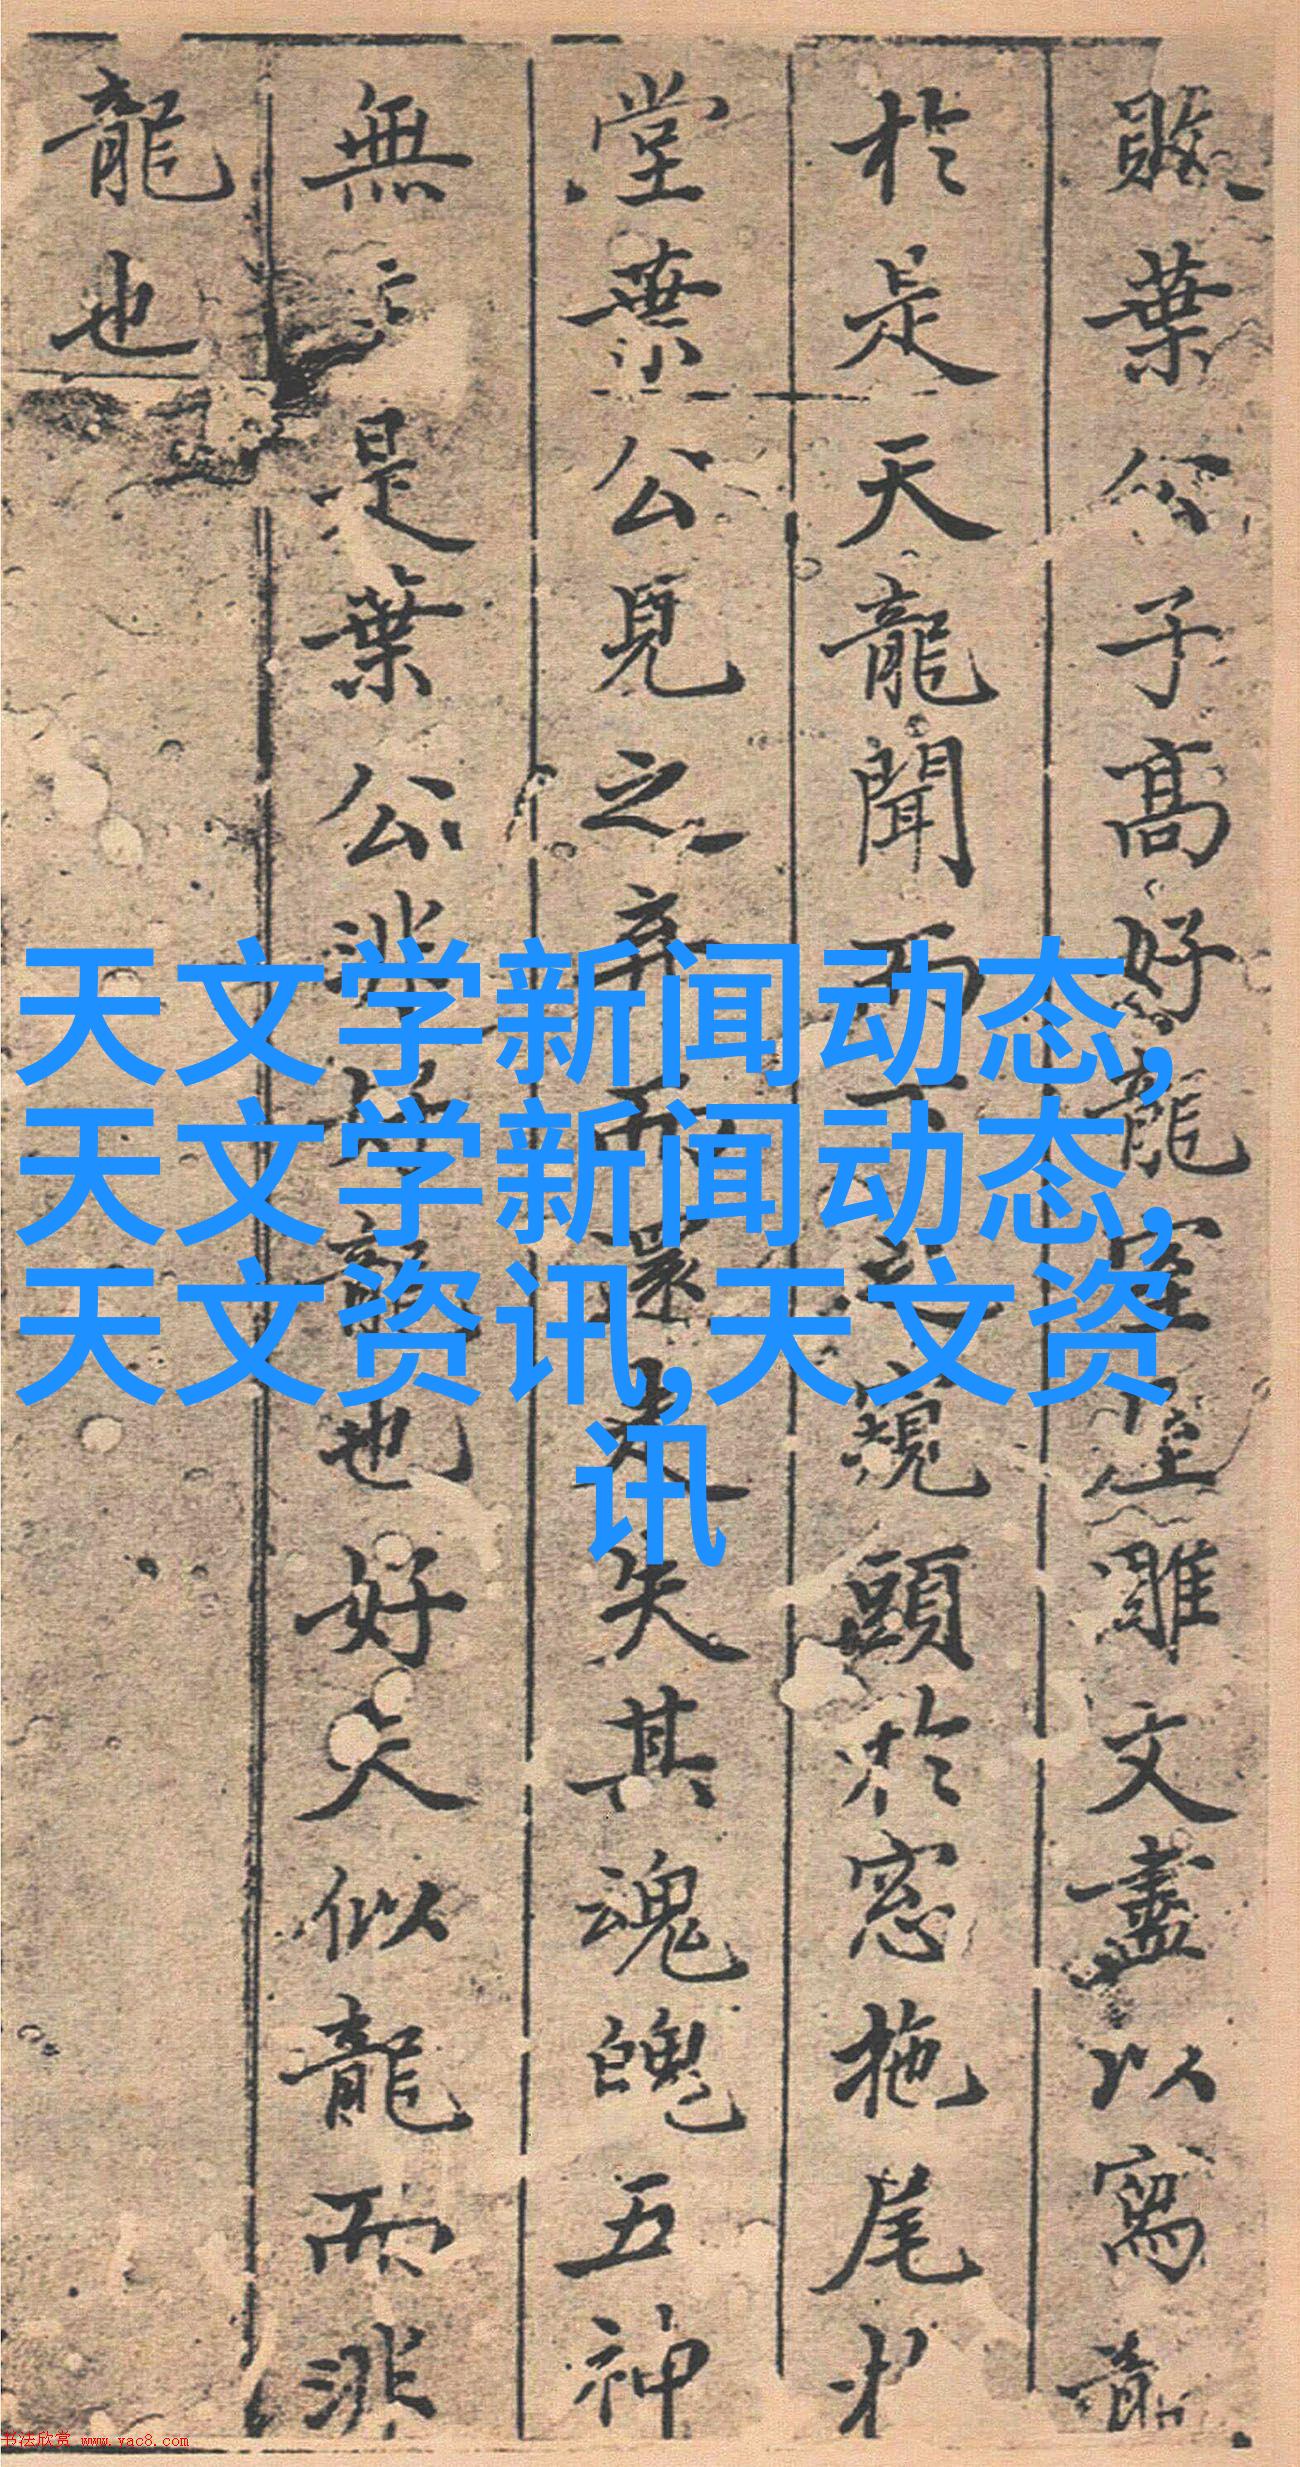 敗葉公子高好龍室屋雕文盡以寫龍
於是天龍聞而下之窺頭於窓拖尾於
堂葉公見之弃而還走失其魂魄五神
無主是葉公非好龍也好夫似龍而非
龍也
天文学新闻动态,
天文学新闻动态,
天文资讯,天文资
讯
书法欣赏 www.yac8.com